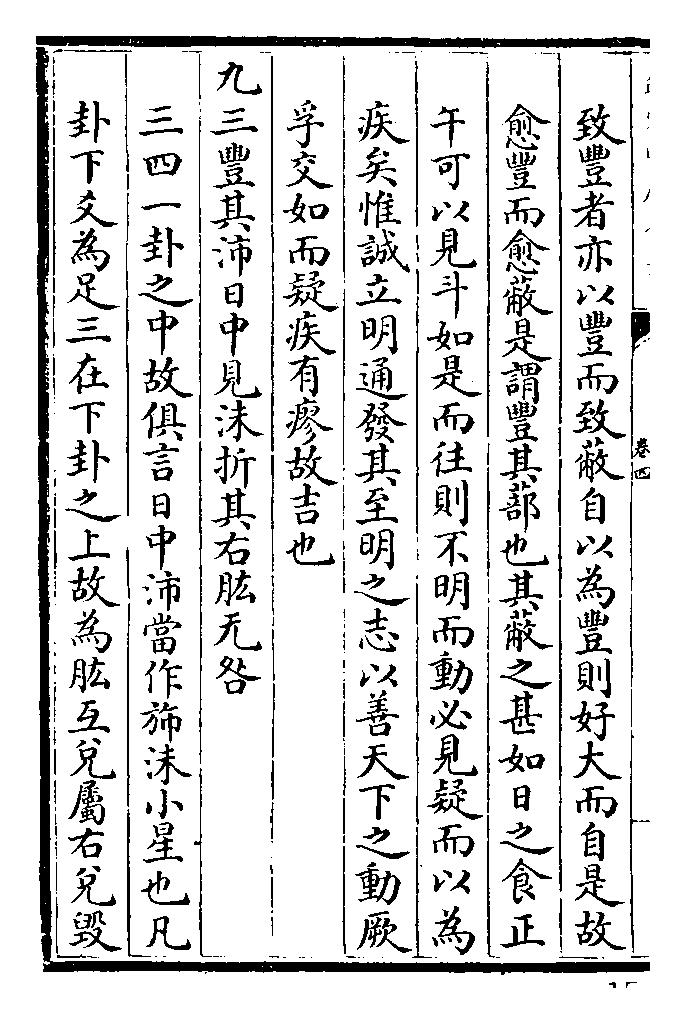 致豐者亦以豐而致蔽自以為豐則好大而自是故
愈豐而愈蔽是謂豐其蔀也其蔽之甚如日之食正
午可以見斗如是而往則不明而動必見疑而以為
疾矣惟誠立明通發其至明之志以善天下之動厥
孚交如而疑疾有瘳故吉也
九三豐其沛日中見沬折其右肱无咎
三四一卦之中故俱言日中沛當作斾沬小星也凡
卦下爻為足三在下卦之上故為肱互兌屬右兌毀
卷四